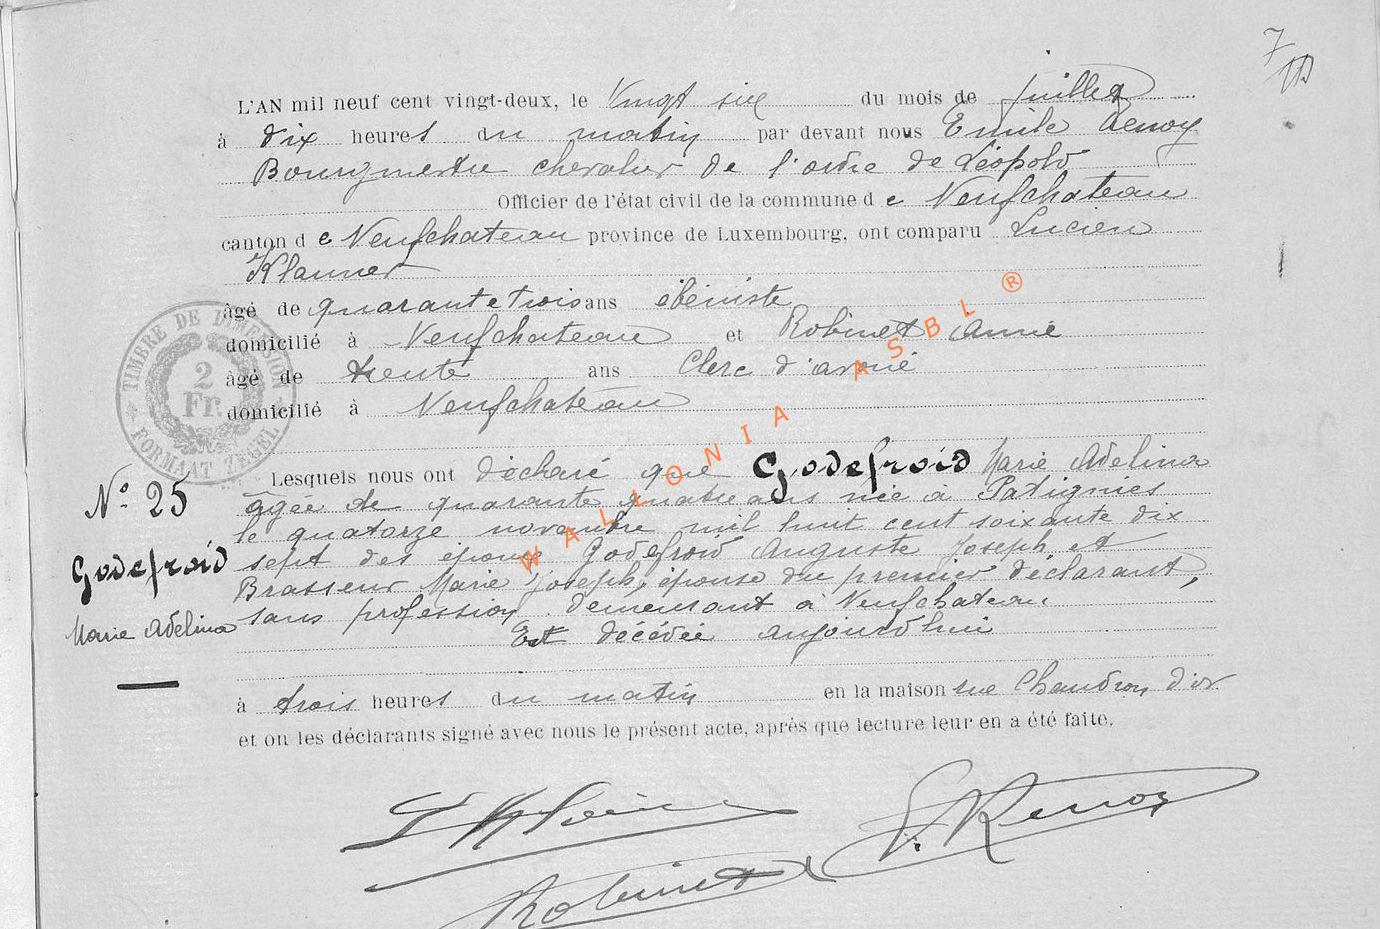 L'AN mil neuf cent vingt-deux, le Vingt six du mois de Juillet
à dix heures du matin par devant nous Emile
Bourgmestre chevalier de l'ordre de Léopold
Officier de l'état civil de la commune d e Neufchateau
canton d e Neufchateau province de Luxembourg, ont comparu Lucien
âgé de quarante trois ans ébéniste
domicilié à Neufchateau et Robinet
âgé de trente ans Clerc d'avoué
domicilié à Neufchateau
TIMBRE DE DIMENSION
2
Fr.
FORMAAT ZEGEL
WALLONIA ASBL ®
Lesquels nous ont déclaré que Godefroid Marie Adelina
N° 25
âgée de quarante quatre ans née à Patignies
le quatorze novembre mil huit cent soixante dix
sept des époux Godefroid Auguste Joseph et
Godefroid
Brasseur Marie Joseph, épouse du premier déclarant,
sans profession demeurant à Neufchateau
Marie Adelina
Est décédée aujourd'hui
à trois heures du matin en la maison rue Chaudron d'or
et on les déclarants signé avec nous le présent acte, après que lecture leur en a été faite.
Robinet